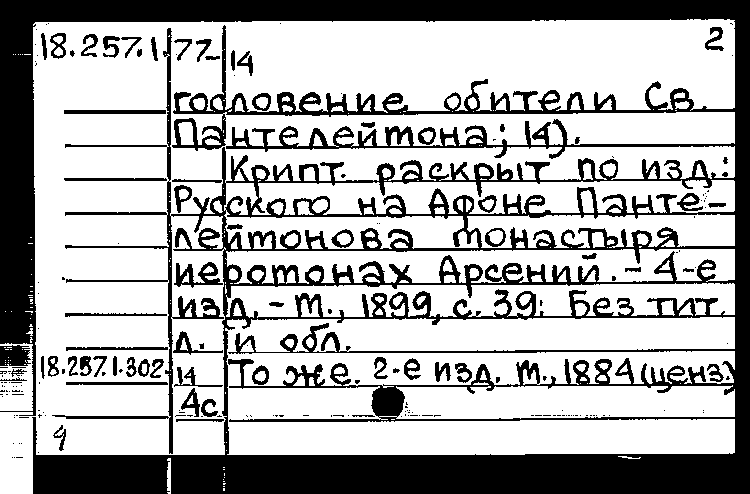 18.257.1.77- 14 2
гословение обители Св.
Пантелеймона; 14).
Крипт. раскрыт по изд.:
Русского на Афоне Панте-
леймонова монастыря
иеромонах Арсений. - 4-е
изд. - М., 1899, с. 39: Без тит.
л. и обл.
18.257.1.302- 14 То же. 2-е изд. М., 1884 (ценз.)
4с
9